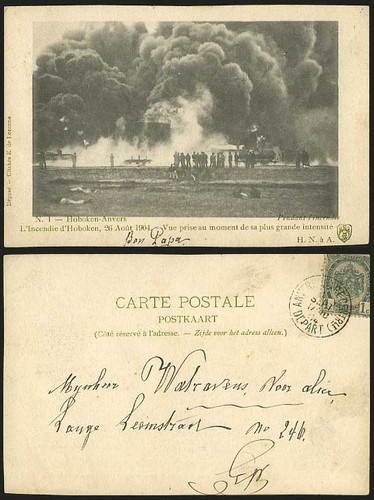 Déposé - Clichés E. de
N. 1 — Hoboken-Anvers Pendant l'incendie
L'Incendie d'Hoboken, 26 Août 1904. Vue prise au moment de sa plus grande intensité
Bon Papa
H. N. à A.
CARTE POSTALE
POSTKAART
(Côté réservé à l'adresse. — Zijde voor het adres alleen.)
DEPART
Mynheer Walravens,
Lange Leemstraat No 246.